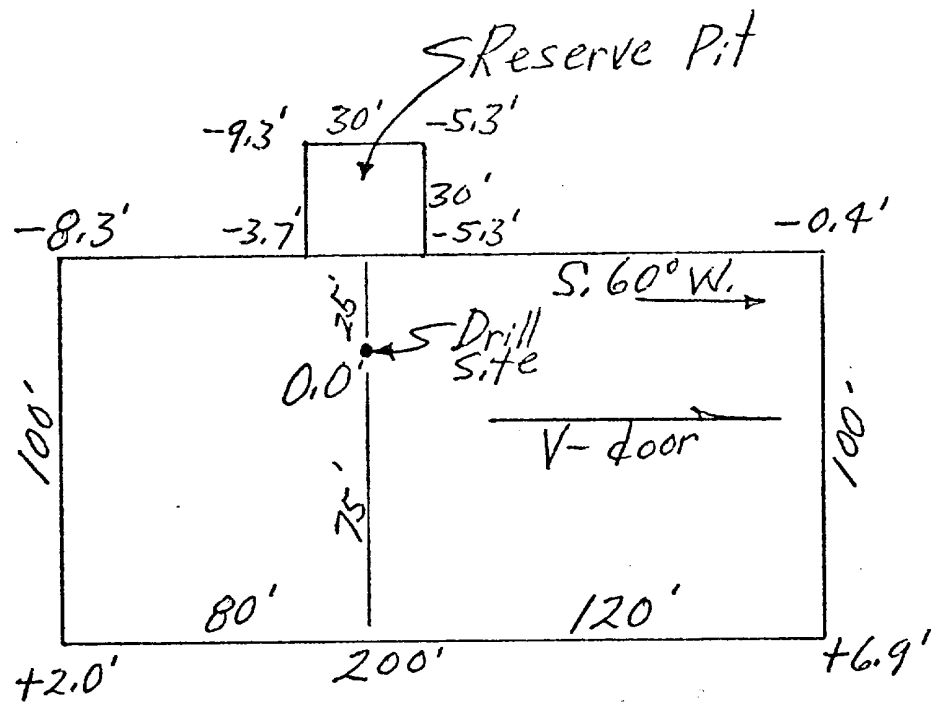 Reserve Pit
-9.3' 30' -5.3'
30'
-8.3' -3.7' -5.3' -0.4'
S. 60° W.
25'
Drill
site
0.0'
100' V-door 100'
75'
80' 120'
+2.0' 200' +6.9'